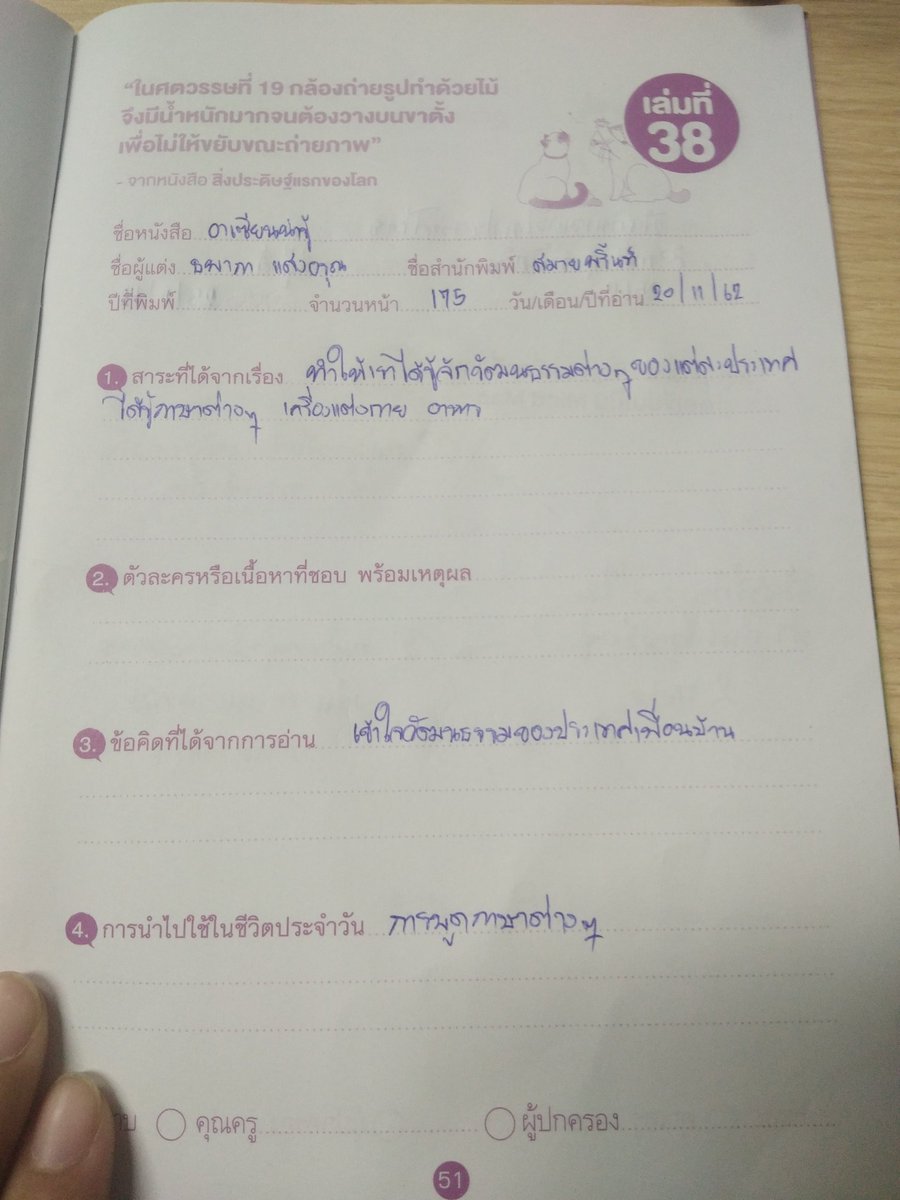 “ในศตวรรษที่ 19 กล้องถ่ายรูปทำด้วยไม้
จึงมีน้ำหนักมากจนต้องวางบนขาตั้ง
เพื่อไม่ให้ขยับขณะถ่ายภาพ”
- จากหนังสือ สิ่งประดิษฐ์แรกของโลก
เล่มที่
38
ชื่อหนังสือ อาเซียนน่ารู้
ชื่อผู้แต่ง แสงอรุณ ชื่อสำนักพิมพ์ สมายพริ้นท์
ปีที่พิมพ์ จำนวนหน้า 175 วัน/เดือน/ปีที่อ่าน 20/11/62
1. สาระที่ได้จากเรื่อง ทำให้เราได้รู้จักวัฒนธรรมต่างๆของแต่ละประเทศ
ได้รู้ภาษาต่างๆ เครื่องแต่งกาย อาหาร
2. ตัวละครหรือเนื้อหาที่ชอบ พร้อมเหตุผล
3. ข้อคิดที่ได้จากการอ่าน เข้าใจวัฒนธรรมของประเทศเพื่อนบ้าน
4. การนำไปใช้ในชีวิตประจำวัน การพูดภาษาต่างๆ
คุณครู ผู้ปกครอง
51